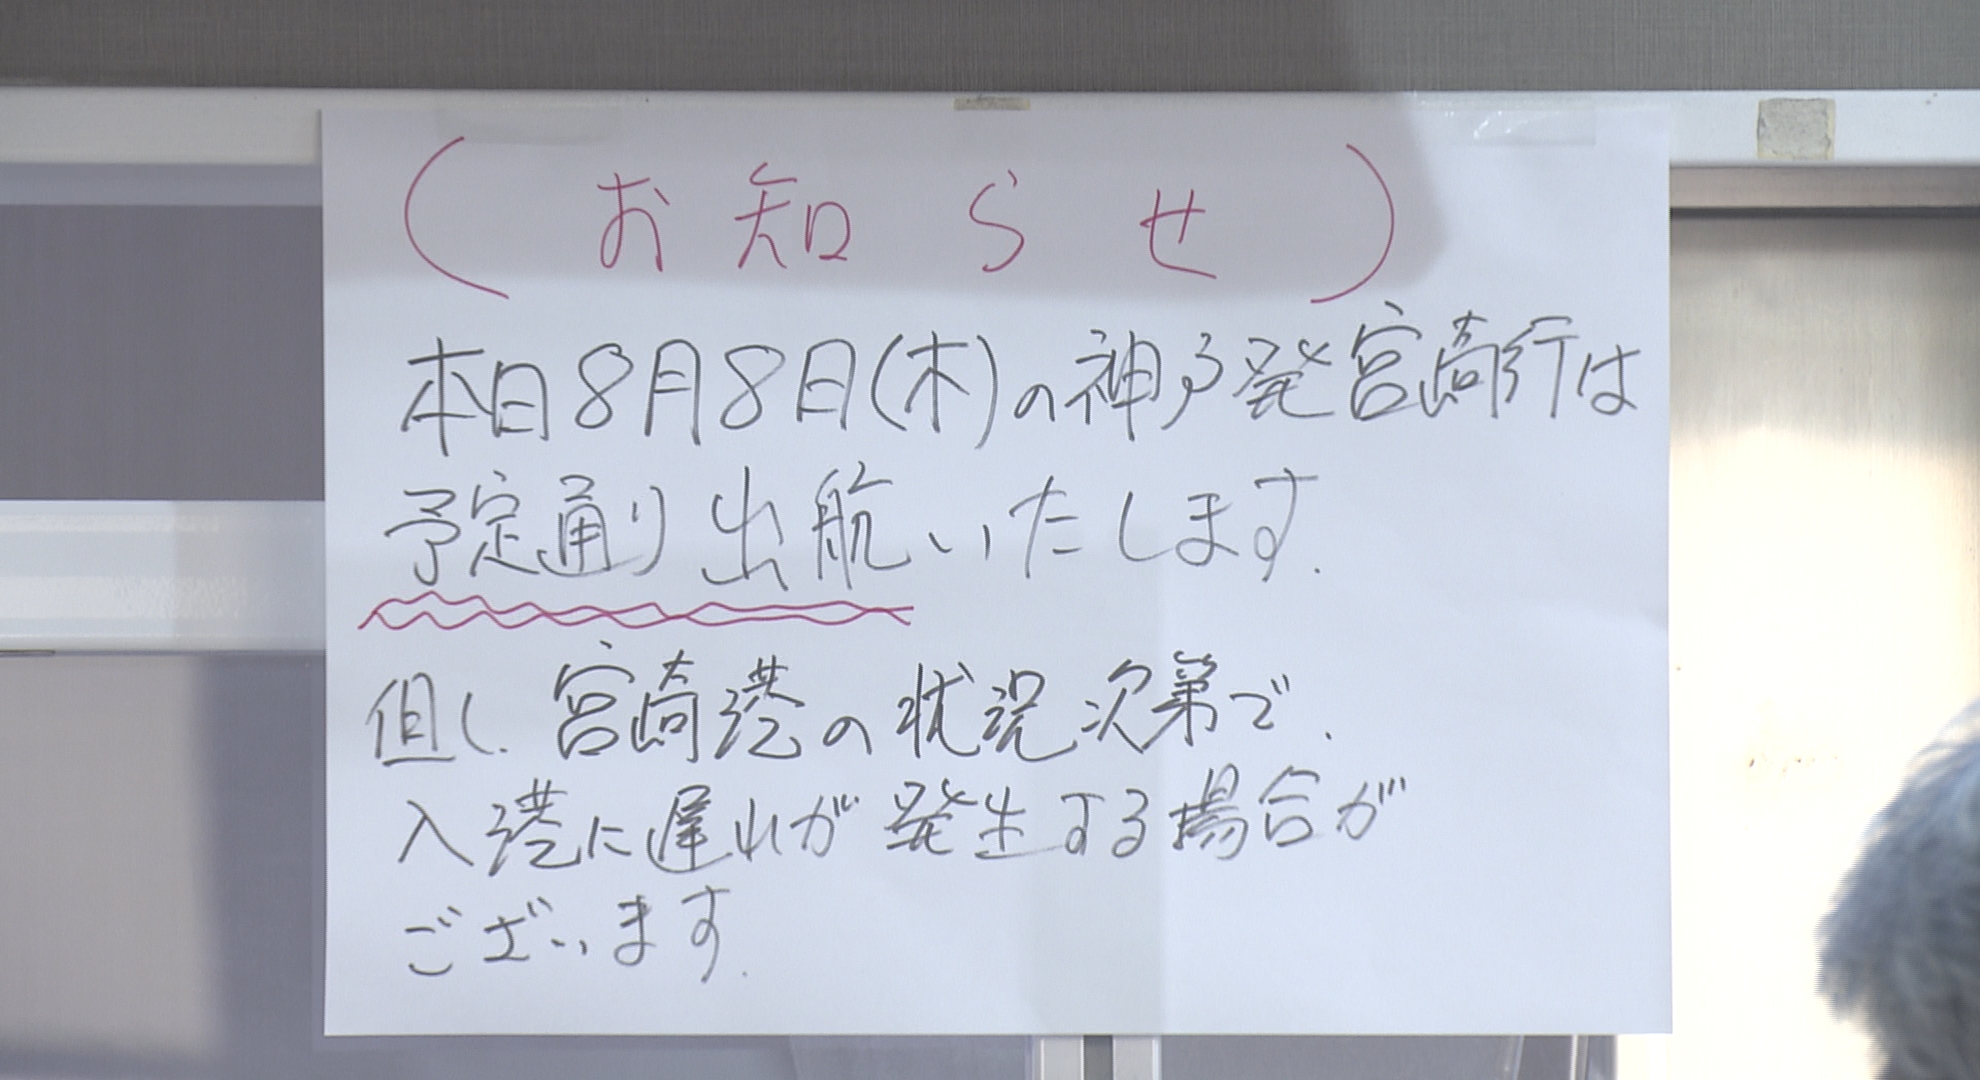 (お知らせ)
本日8月8日(木)の神戸発宮崎行は
予定通り出航いたします.
但し.宮崎港の状況次第で.
入港に遅れが発生する場合が
ございます.